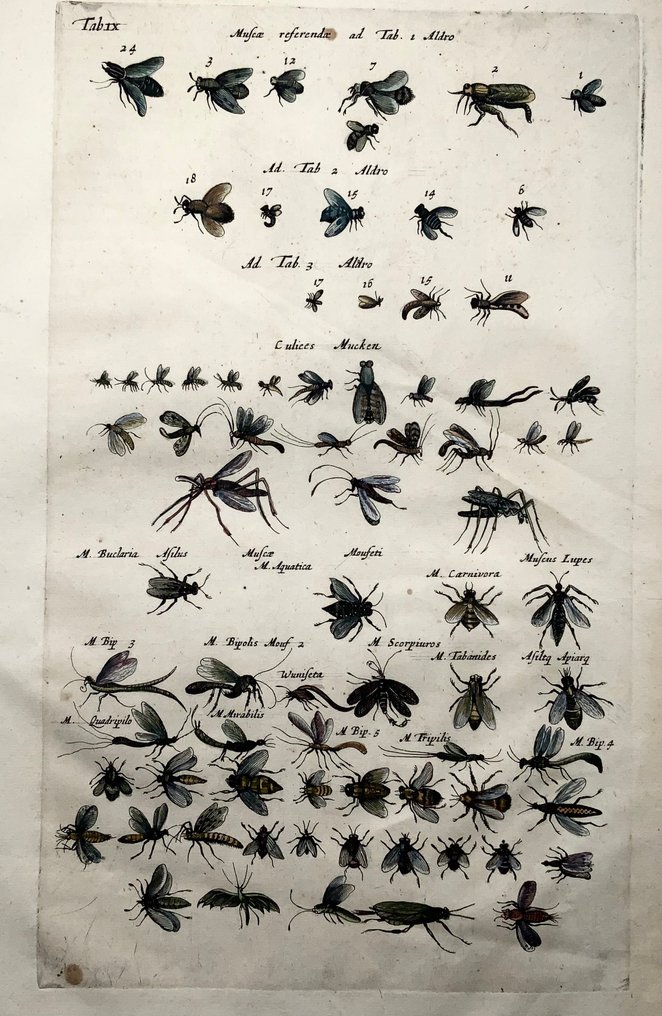 Tab IX
Muſcæ referendæ ad Tab. 1 Aldro
24 3 12 7 2 1
Ad. Tab 2 Aldro
18 17 15 14 6
Ad. Tab. 3 Aldro
17 16 15 11
Culices Mucken
M. Buclaria Aſilus Muſcæ Moufeti Muſcus Lupes
M. Aquatica M. Carnivora
M. Bip 3 M. Bipolis Mouf 2 M. Scorpiuros
M. Tabanides Aſiltq Apiarq
Wunifeta
M. Quadripilo M. Mirabilis
M Bip. 5 M. Tripilis M. Bip. 4